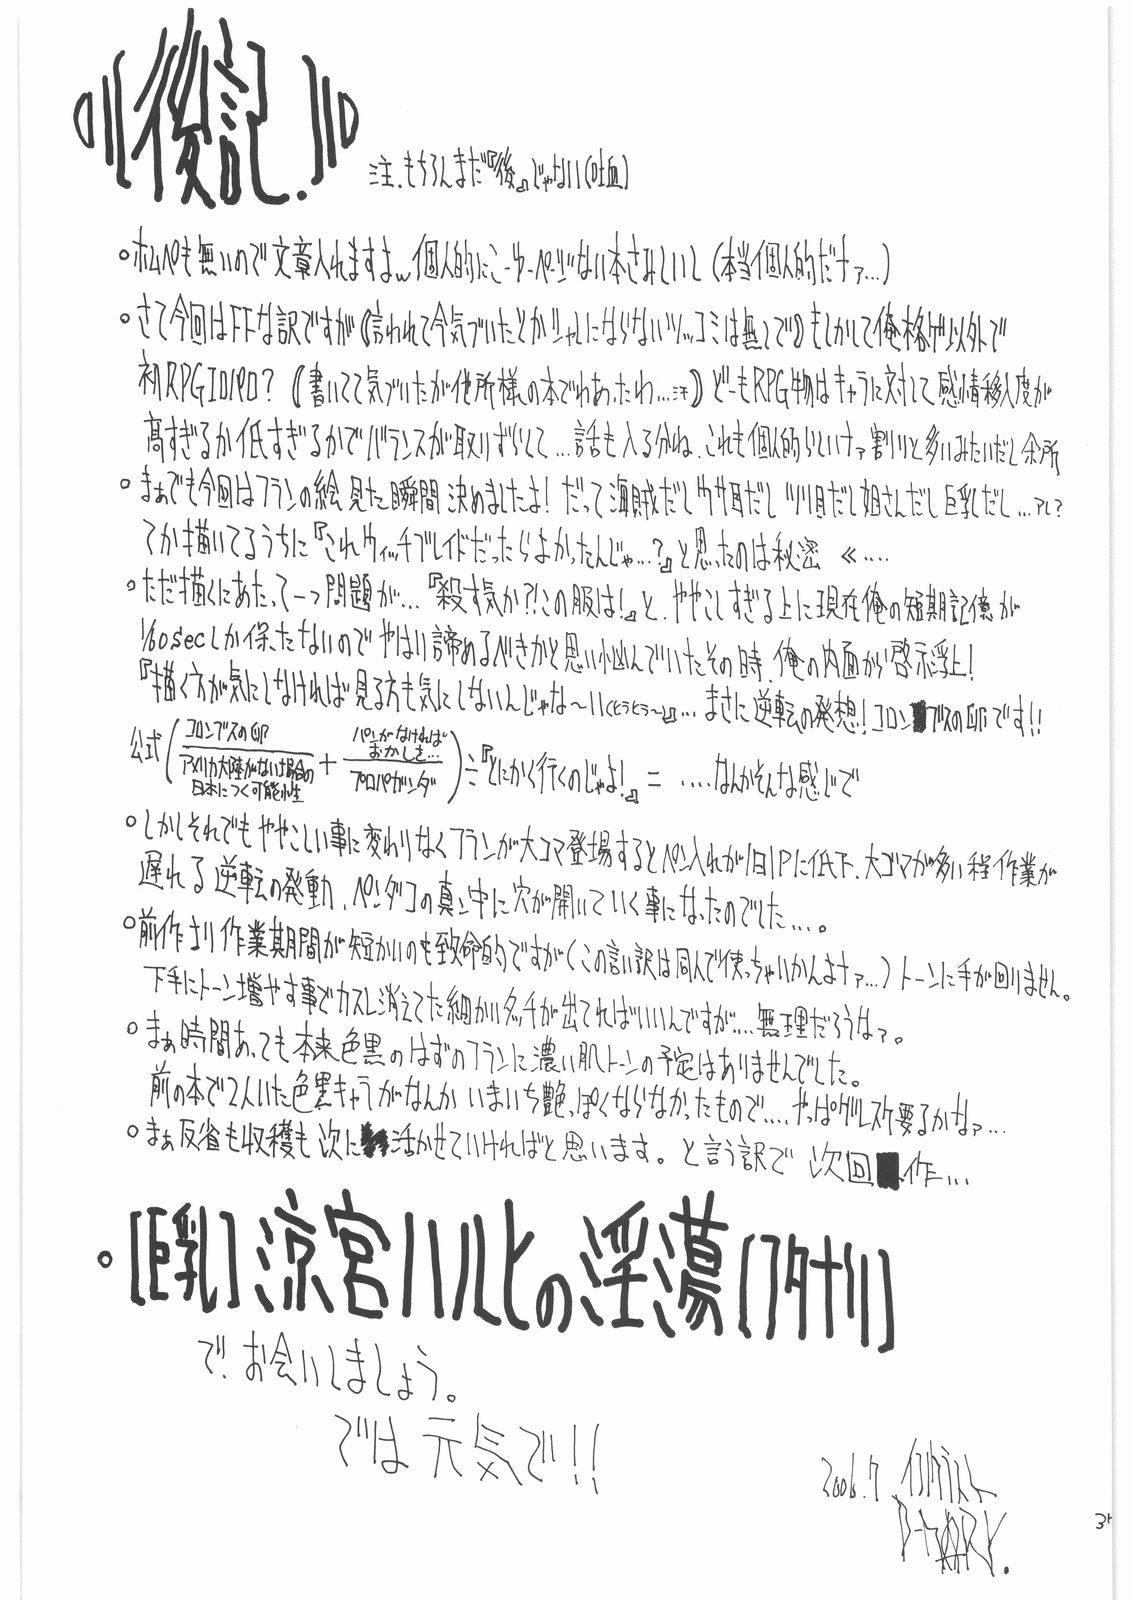 後記.
注.もちろんまだ『後』じゃない(吐血)
。ホムペも無いので文章入れますよぉw個人的にこーゆーページない本さみしいし(本当個人的だナァ…)
。さて今回はFFな訳ですが《言われて今気づいたとかシャレにならないツッコミは無しで》もしかして俺格ゲ以外で
初RPGエロパロ?《書いてて気づいたが他所様の本でわあったわ…汗》どーもRPG物はキャラに対して感情移入度が
高すぎるか低すぎるかでバランスが取りずらくて…話も入る分ね、これも個人的らしいナァ割りと多いみたいだし余所
。まぁでも今回はフランの絵見た瞬間決めましたよ!だって海賊だしウサ耳だしツリ目だし姐さんだし巨乳だし…アレ?
てか描いてるうちに『これウィッチブレイドだったらよかったんじゃ…?』と思ったのは秘密 《‥‥
。ただ描くにあたって一つ問題が…『殺す気か?!この服は!』と、ややこしすぎる上に現在俺の短期記憶が
1/60secしか保たないのでやはり諦めるべきかと思い悩んでいたその時、俺の内面から啓示浮上!
『描く方が気にしなければ見る方も気にしないんじゃな〜い(ヒラヒラ〜)』…まさに逆転の発想!コロンブスの卵です!!
公式(コロンブスの卵/アメリカ大陸がない場合の日本につく可能性+パンがなければおかしを…/プロパガンダ)÷『とにかく行くのじゃよ!』=‥‥なんかそんな感じで
。しかしそれでもややこしい事に変わりなくフランが大コマ登場するとペン入れが1日1Pに低下、大ゴマが多い程作業が
遅れる逆転の発動、ペンダコの真ン中に穴が開いていく事になったのでした‥‥。
。前作より作業期間が短かいのも致命的ですが(この言い訳は同人で使っちゃいかんよナァ…)トーンに手が回りません。
下手にトーン増やす事でカスレ消えてた細かいタッチが出てればいいんですが‥‥無理だろうなァ。
。まぁ時間あっても本来色黒のはずのフランに濃い肌トーンの予定はありませんでした。
前の本で2人いた色黒キャラがなんかいまいち艶っぽくならなかったもので‥‥やっぱグレスケ要るかなァ…
。まぁ反省も収穫も次に活かせていければと思います。と言う訳で 次回作…
。[巨乳]涼宮ハルヒの淫蕩[フタナリ]
で、お会いしましょう。
では元気で!!
2006.7